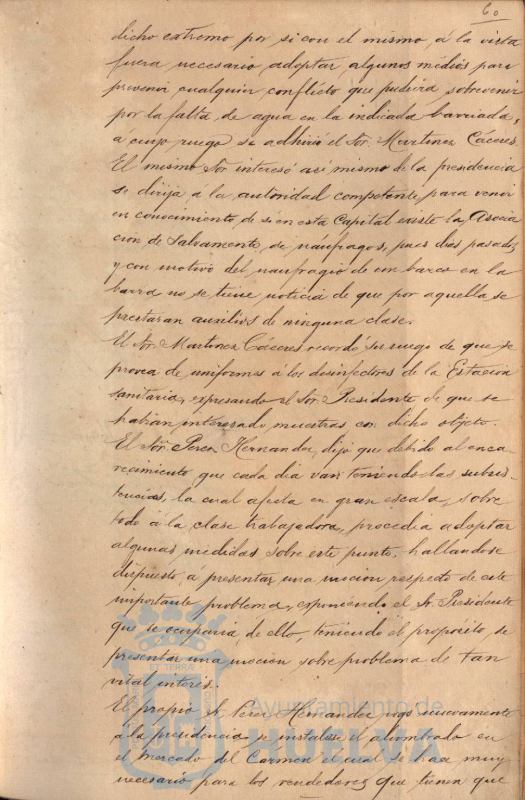 60
dicho extremo por si con el mismo, á la vista
fuera necesario adoptar algunos medios para
prevenir cualquier conflicto que pudiera sobrevenir
por la falta de agua en la indicada barriada,
á cuyo ruego se adhirió el Sor. Martinez Cáceres.
El mismo Sor interesó asi mismo de la presidencia
se dirija á la autoridad competente para venir
en conocimiento de si en esta Capital existe la Asocia
cion de Salvamento de náufragos, pues dias pasados
y con motivo del naufragio de un barco en la
barra no se tiene noticia de que por aquella se
prestaran auxilios de ninguna clase.
El Sor. Martinez Cáceres recordó su ruego de que se
provea de uniformes á los desinfectores de la Estacion
sanitaria, expresando el Sor. Presidente de que se
habian interesado muestras con dicho objeto.
El Sor. Perez Hernandez, dijo que debido al enca
recimiento que cada dia van teniendo las subsis-
tencias, la cual afecta en gran escala, sobre
todo á la clase trabajadora, procedia adoptar
algunas medidas sobre este punto, hallandose
dispuesto á presentar una mocion respecto de este
importante problema, exponiendo el Sr. Presidente
que se ocuparia de ello, teniendo el propósito de
presentar una mocion sobre problema de tan
vital interés.
El propio Sr. Perez Hernandez rogó nuevamente
á la presidencia se instalase el alumbrado en
el Mercado del Carmen el cual se hace muy
necesario para los vendedores que tienen que
Ayuntamiento de
HUELVA